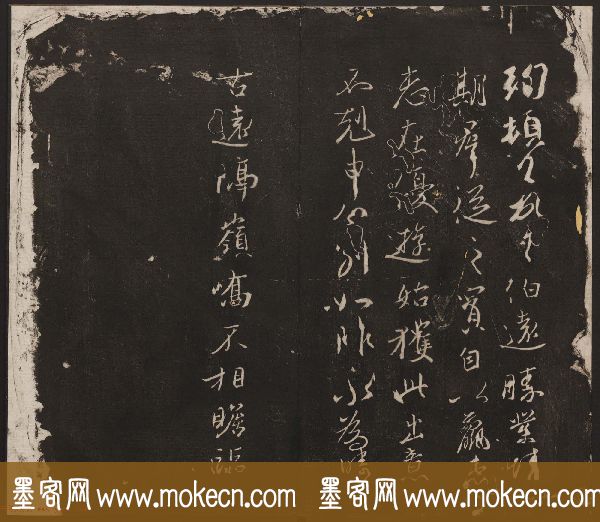 珣頓首頓首伯遠勝業情
期群從之寶自以羸患
志在優遊始獲此出意
不剋申分別如昨永為疇
古遠隔嶺嶠不相瞻臨
墨客网 www.mokecn.com 墨客网 www.mokecn.com